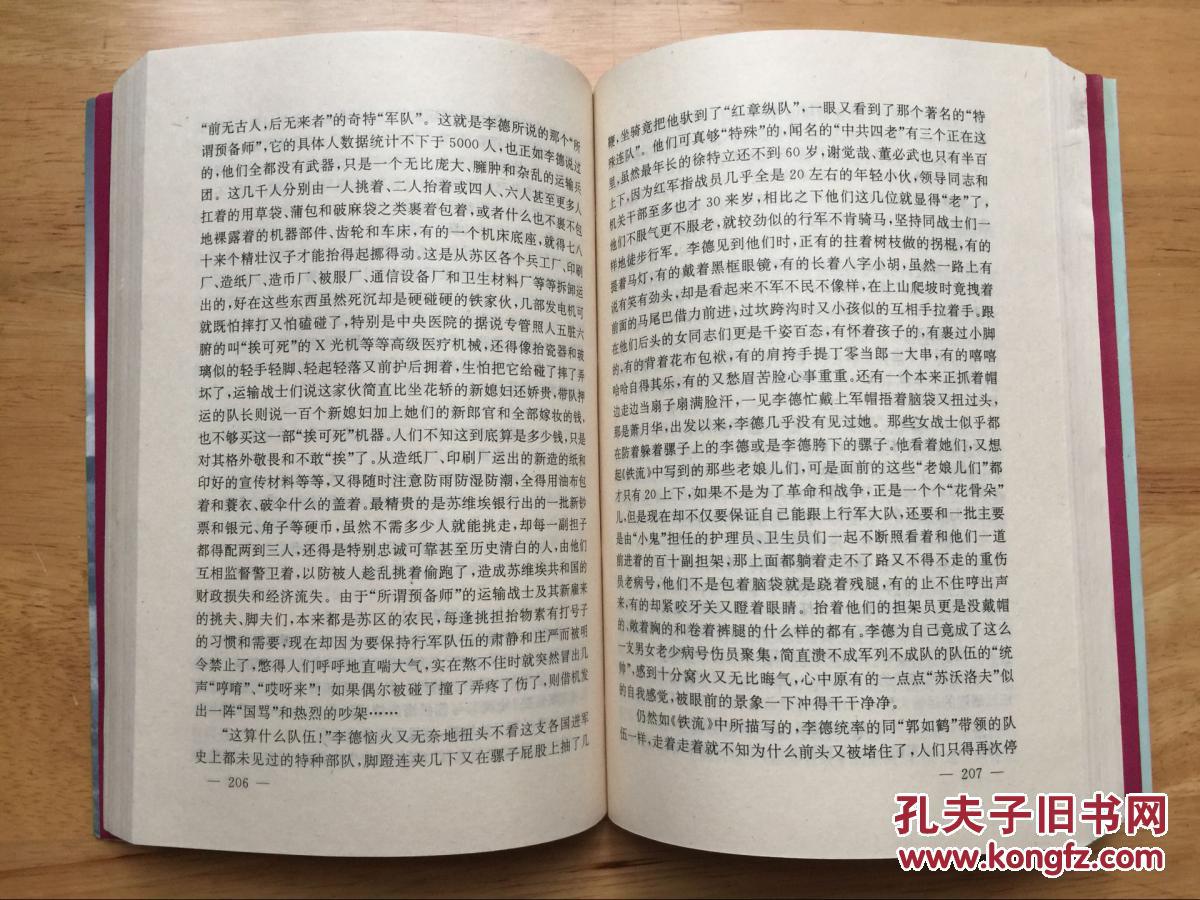 “前无古人，后无来者”的奇特“军队”。这就是李德所说的那个“所
谓预备师”，它的具体人数据统计不下于 5000 人，也正如李德说过
的，他们全都没有武器，只是一个无比庞大、臃肿和杂乱的运输兵
团。这几千人分别由一人挑着、二人抬着或四人、六人甚至更多人
扛着的用草袋、蒲包和破麻袋之类裹着包着，或者什么也不裹不包
地裸露着的机器部件、齿轮和车床，有的一个机床底座，就得七八
十来个精壮汉子才能抬得起挪得动。这是从苏区各个兵工厂、印刷
厂、造纸厂、造币厂、被服厂、通信设备厂和卫生材料厂等等拆卸运
出的，好在这些东西虽然死沉却是硬碰硬的铁家伙，几部发电机可
就既怕摔打又怕磕碰了，特别是中央医院的据说专管照人五脏六
腑的叫“挨可死”的 X 光机等等高级医疗机械，还得像抬瓷器和玻
璃似的轻手轻脚、轻起轻落又前护后拥着，生怕把它给碰了摔了弄
坏了，运输战士们说这家伙简直比坐花轿的新媳妇还娇贵，带队押
运的队长则说一百个新媳妇加上她们的新郎官和全部嫁妆的钱，
也不够买这一部“挨可死”机器。人们不知这到底算是多少钱，只是
对其格外敬畏和不敢“挨”了。从造纸厂、印刷厂运出的新造的纸和
印好的宣传材料等等，又得随时注意防雨防湿防潮，全得用油布包
着和蓑衣、破伞什么的盖着。最精贵的是苏维埃银行出的一批新钞
票和银元、角子等硬币，虽然不需多少人就能挑走，却每一副担子
都得配两到三人，还得是特别忠诚可靠甚至历史清白的人，由他们
互相监督警卫着，以防被人趁乱挑着偷跑了，造成苏维埃共和国的
财政损失和经济流失。由于“所谓预备师”的运输战士及其新雇来
的挑夫、脚夫们，本来都是苏区的农民，每逢挑担抬物素有打号子
的习惯和需要，现在却因为要保持行军队伍的肃静和庄严而被明
令禁止了，憋得人们呼呼地直喘大气，实在熬不住时就突然冒出几
声“哼唷”、“哎呀来”！如果偶尔被碰了撞了弄疼了伤了，则借机发
出一阵“国骂”和热烈的吵架……
“这算什么队伍！”李德恼火又无奈地扭头不看这支各国进军
史上都未见过的特种部队，脚蹬连夹几下又在骡子屁股上抽了几
— 206 —
鞭，坐骑竟把他驮到了“红章纵队”，一眼又看到了那个著名的“特
殊连队”。他们可真够“特殊”的，闻名的“中共四老”有三个正在这
里，虽然最年长的徐特立还不到 60 岁，谢觉哉、董必武也只有半百
上下，因为红军指战员几乎全是 20 左右的年轻小伙，领导同志和
机关干部至多也才 30 来岁，相比之下他们这几位就显得“老”了，
他们不服气更不服老，就较劲似的行军不肯骑马，坚持同战士们一
样地徒步行军。李德见到他们时，正有的拄着树枝做的拐棍，有的
提着马灯，有的戴着黑框眼镜，有的长着八字小胡，虽然一路上有
说有笑有劲头，却是看起来不军不民不像样，在上山爬坡时竟拽着
前面的马尾巴借力前进，过坎跨沟时又小孩似的互相手拉着手。跟
在他们后头的女同志们更是千姿百态，有怀着孩子的，有裹过小脚
的，有的背着花布包袱，有的肩挎手提丁零当郎一大串，有的嘻嘻
哈哈自得其乐，有的又愁眉苦脸心事重重。还有一个本来正抓着帽
边走边当扇子扇满脸汗，一见李德忙戴上军帽捂着脑袋又扭过头，
那是萧月华，出发以来，李德几乎没有见过她。那些女战士似乎都
在防着躲着骡子上的李德或是李德胯下的骡子。他看着她们，又想
起《铁流》中写到的那些老娘儿们，可是面前的这些“老娘儿们”都
才只有 20 上下，如果不是为了革命和战争，正是一个个“花骨朵”
儿，但是现在却不仅要保证自己能跟上行军大队，还要和一批主要
是由“小鬼”担任的护理员、卫生员们一起不断照看着和他们一道
前进着的百十副担架，那上面都躺着走不了路又不得不走的重伤
员老病号，他们不是包着脑袋就是跷着残腿，有的止不住哼出声
来，有的却紧咬牙关又瞪着眼睛。抬着他们的担架员更是没戴帽
的、敞着胸的和卷着裤腿的什么样的都有。李德为自己竟成了这么
一支男女老少病号伤员聚集，简直溃不成军列不成队的队伍的“统
帅”，感到十分窝火又无比晦气，心中原有的一点点“苏沃洛夫”似
的自我感觉，被眼前的景象一下冲得干干净净。
仍然如《铁流》中所描写的，李德统率的同“郭如鹤”带领的队
伍一样，走着走着就不知为什么前头又被堵住了，人们只得再次停
— 207 —
孔夫子旧书网
www.kongfz.com